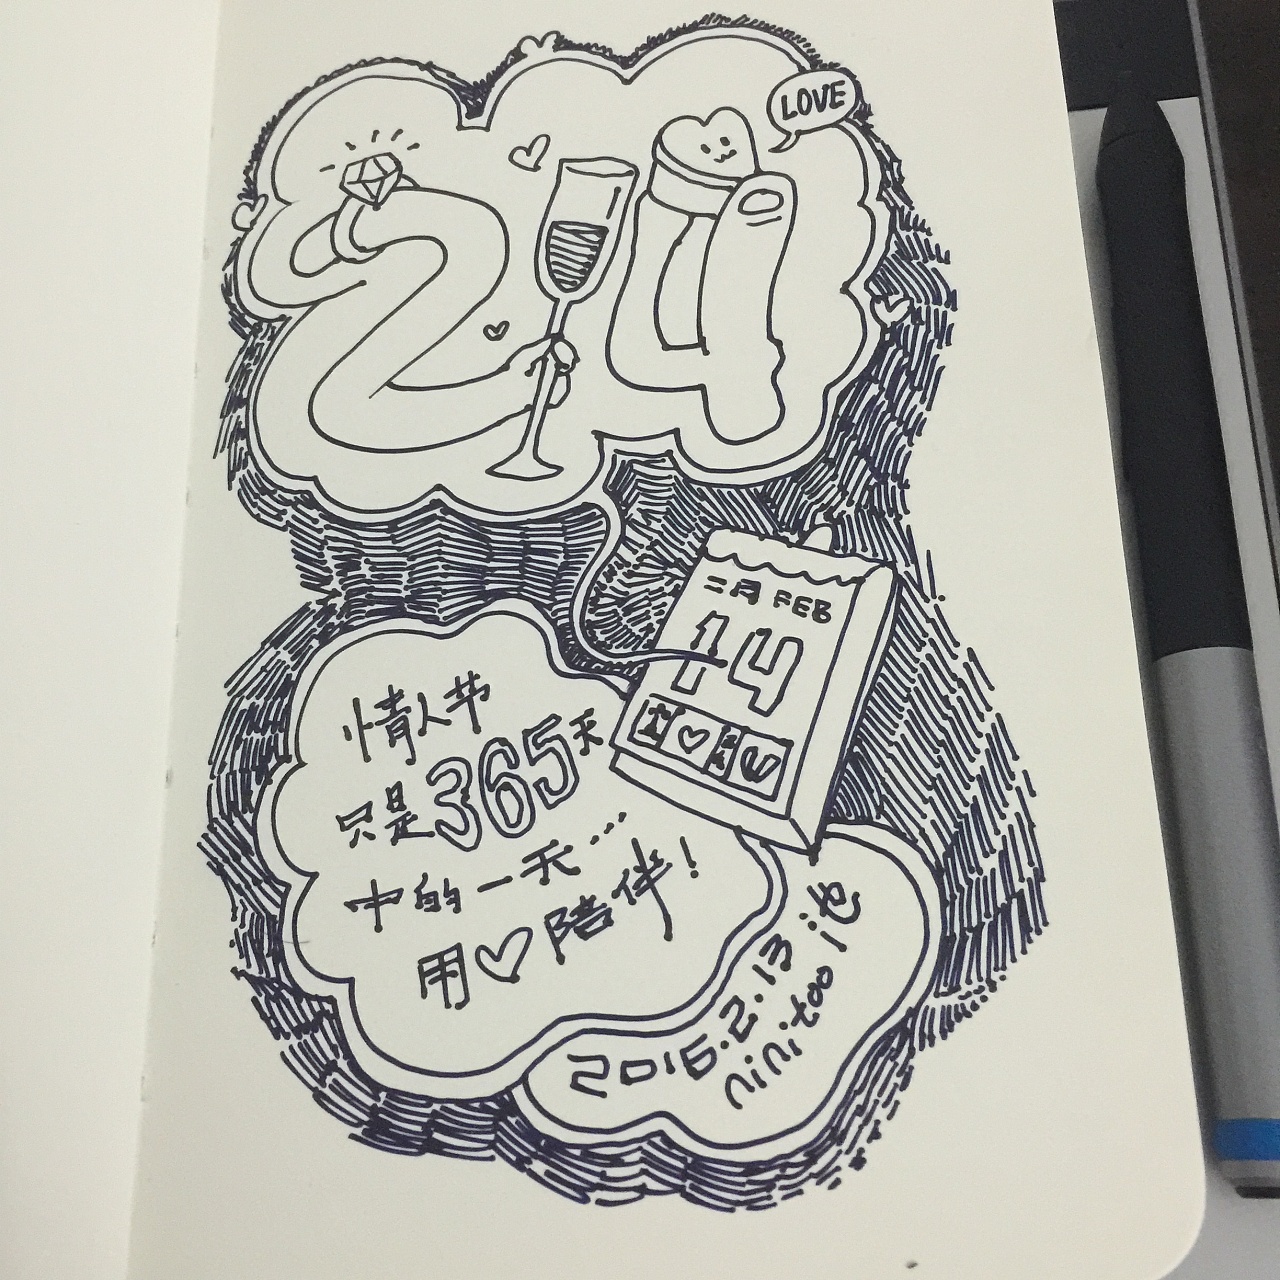 LOVE
214
二月 FEB
14
情人节
只是365天
中的一天…
用♡陪伴!
2016.2.13
ninitoo 记